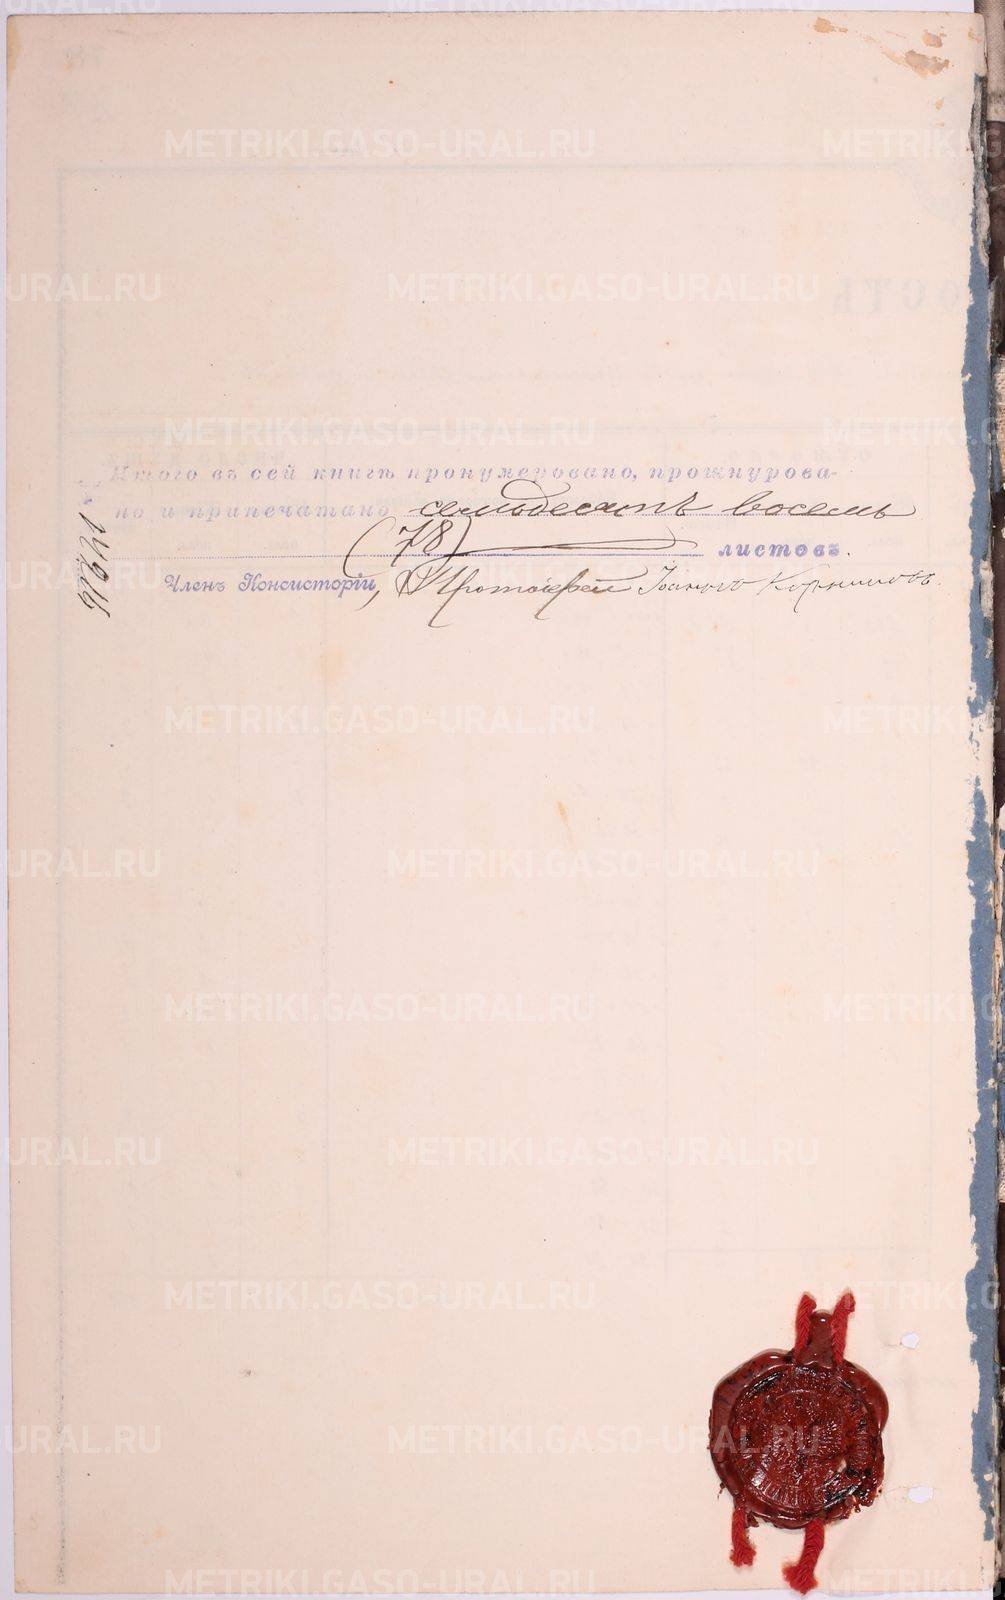 METRIKI.GASO-URAL.RU
Итого въ сей книгѣ пронумеровано, прошнурова-
но и припечатано семьдесятъ восемь
(78) листовъ.
Членъ Консисторіи, Протоіерей Іоаннъ